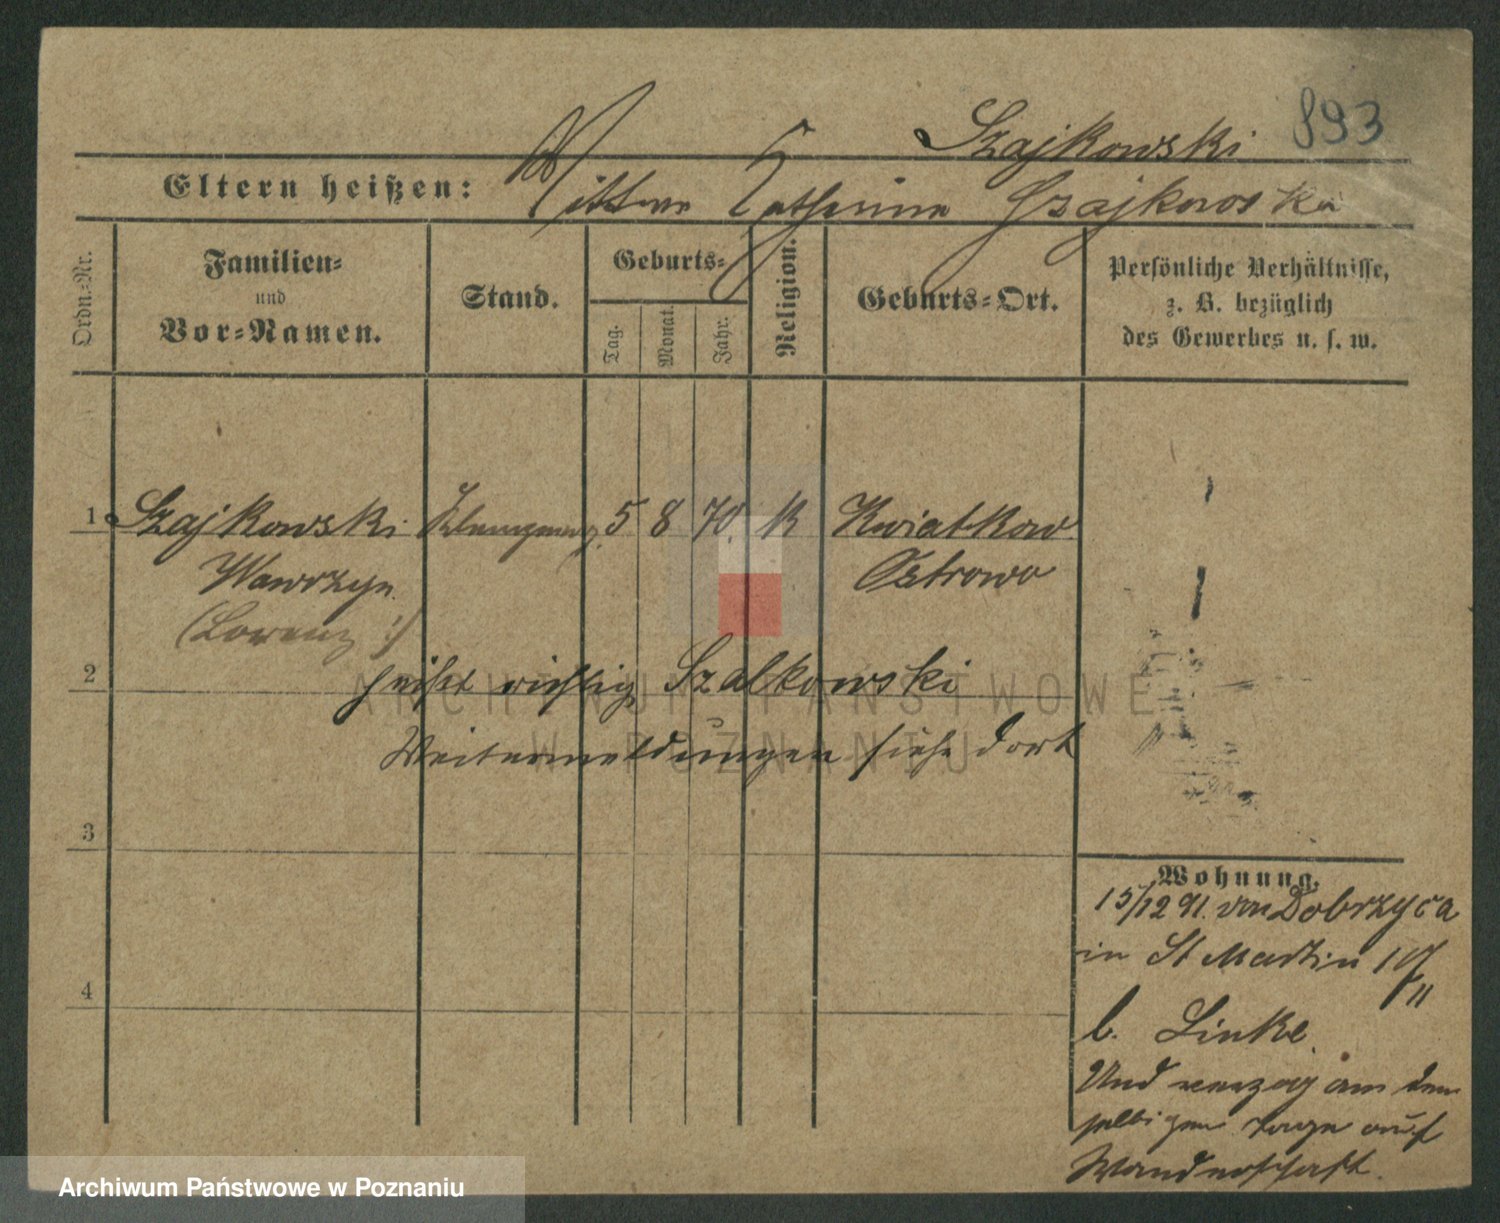 Szajkowski 893
Eltern heißen: Wittwe Catharina Szajkowska
Ordn.-Nr.
Familien-
und
Vor-Namen.
Stand.
Geburts-
Tag.
Monat.
Jahr.
Religion.
Geburts-Ort.
Persönliche Verhältnisse,
z. B. bezüglich
des Gewerbes u. s. w.
1 Szajkowski 5 8 70. K Kwiatkow
Wawrzyn Ostrowo
(Lorenz :)
2 heißt richtig Szalkowski
Weitermeldungen siehe dort
3
4
Wohnung.
15/12 91. von Dobrzyca
in St Martin
b. Linke
Und verzog am dem
selbigen Tage auf
Wanderschaft.
ARCHIWUM PAŃSTWOWE
W POZNANIU
Archiwum Państwowe w Poznaniu